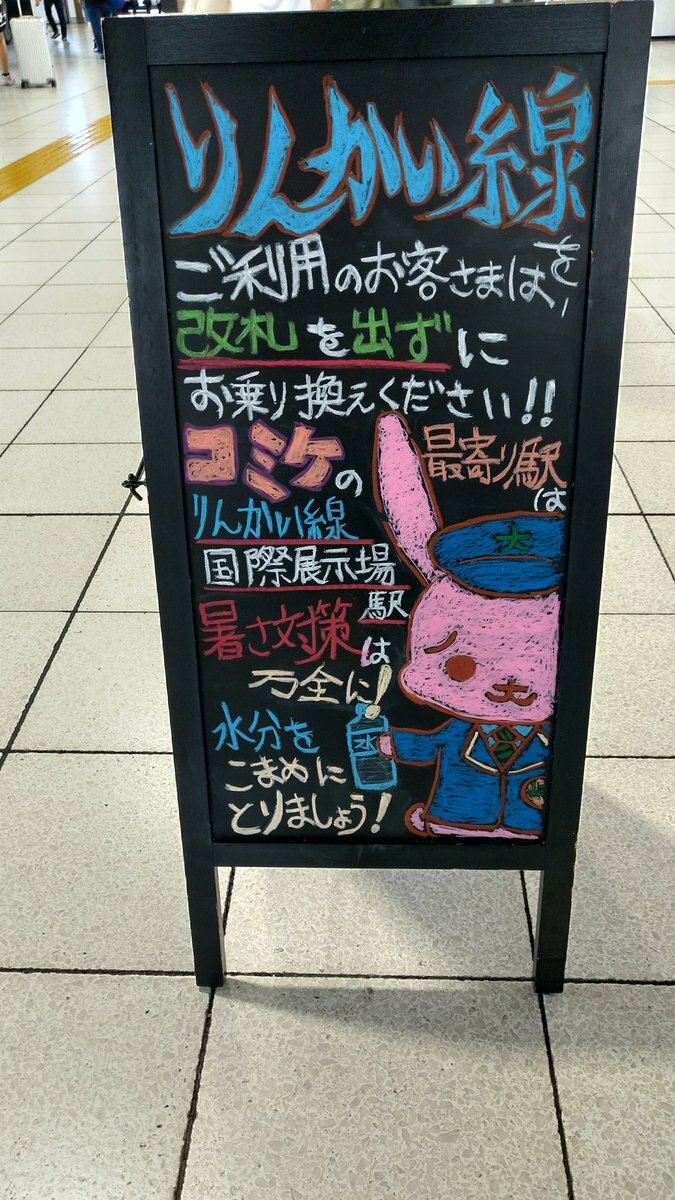 りんかい線
を、
ご利用のお客さまは、
改札を出ずに
お乗り換えください!!
コミケの
最寄り駅は
りんかい線
国際展示場駅
暑さ対策は
万全に!
水分を
こまめに
とりましょう!
水
大